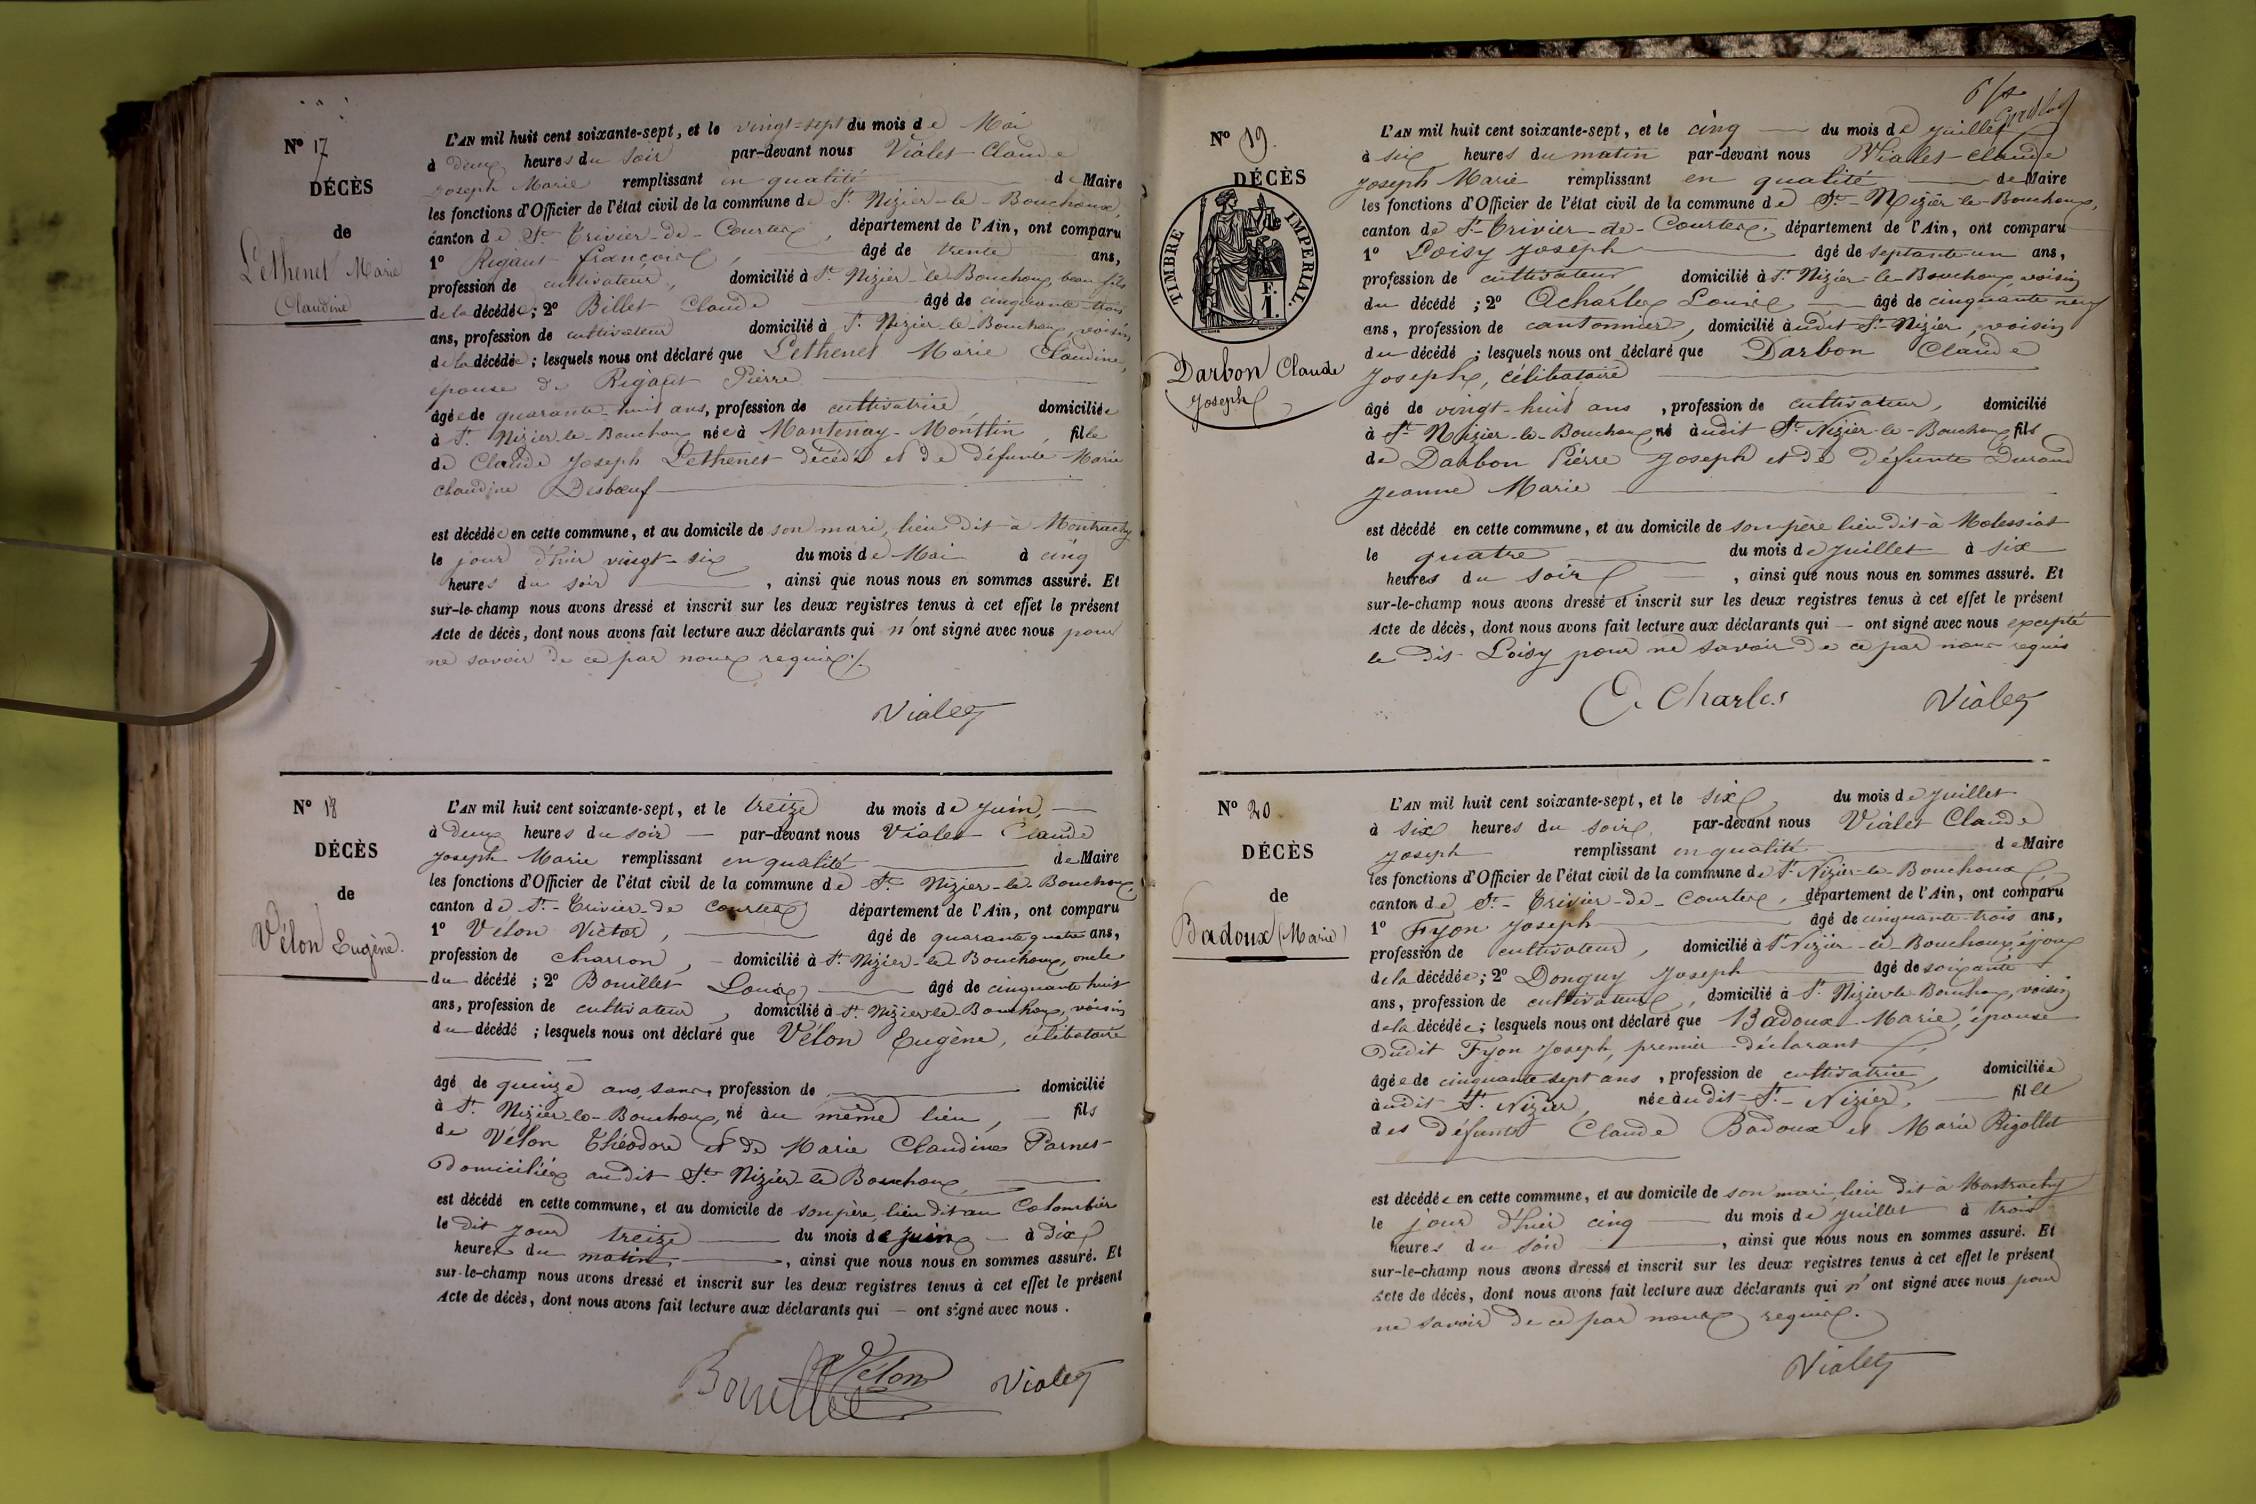 N° 17
DÉCÈS
de
Lethenet Marie
Claudine
L'AN mil huit cent soixante-sept, et le vingt-sept du mois de Mai
à deux heures du soir par-devant nous Vialet Claude
Joseph Marie remplissant en qualité de Maire
les fonctions d'Officier de l'état civil de la commune de St Nizier-le-Bouchoux,
canton de St-Trivier-de-Courtes, département de l'Ain, ont comparu
1° Rigaut françois, âgé de trente ans,
profession de cultivateur, domicilié à St Nizier-le-Bouchoux beau fils
de la décédée; 2° Billet Claude âgé de cinquante trois
ans, profession de cultivateur domicilié à St Nizier-le-Bouchoux, voisin
de la décédée; lesquels nous ont déclaré que Lethenet Marie Claudine,
épouse de Rigaut Pierre
âgée de quarante-huit ans, profession de cultivatrice domiciliée
à St Nizier-le-Bouchoux née à Mantenay-Montlin, fille
de Claude Joseph Lethenet décédé et de défunte Marie
Claudine Desboeuf
est décédée en cette commune, et au domicile de son mari, lieu dit à Montrachy
le jour d'hier vingt-six du mois de Mai à cinq
heures du soir, ainsi que nous nous en sommes assuré. Et
sur-le-champ nous avons dressé et inscrit sur les deux registres tenus à cet effet le présent
Acte de décès, dont nous avons fait lecture aux déclarants qui n'ont signé avec nous pour
ne savoir de ce par nous requis ./.
Vialet
N° 18
DÉCÈS
de
Vélon Eugène.
L'AN mil huit cent soixante-sept, et le treize du mois de Juin,
à deux heures du soir par-devant nous Vialet Claude
Joseph Marie remplissant en qualité de Maire
les fonctions d'Officier de l'état civil de la commune de St Nizier-le-Bouchoux,
canton de St-Trivier-de-Courtes département de l'Ain, ont comparu
1° Vélon Victor, âgé de quarante quatre ans,
profession de charron, domicilié à St Nizier-le-Bouchoux, oncle
du décédé; 2° Bouillet Louis âgé de cinquante huit
ans, profession de cultivateur, domicilié à St Nizier-le-Bouchoux, voisin
du décédé; lesquels nous ont déclaré que Vélon Eugène, célibataire
âgé de quinze ans, sans profession de domicilié
à St Nizier-le-Bouchoux, né au même lieu, fils
de Vélon Théodore et de Marie Claudine Parnet
domiciliés audit St Nizier-le-Bouchoux,
est décédé en cette commune, et au domicile de son père, lieu dit au Colombier
le dit jour treize du mois de Juin à dix
heures du matin, ainsi que nous nous en sommes assuré. Et
sur-le-champ nous avons dressé et inscrit sur les deux registres tenus à cet effet le présent
Acte de décès, dont nous avons fait lecture aux déclarants qui — ont signé avec nous.
Bouillet Vélon Vialet
N° 19.
DÉCÈS
TIMBRE IMPERIAL.
F.
1.
Darbon Claude
Joseph
L'AN mil huit cent soixante-sept, et le cinq du mois de Juillet
à six heures du matin par-devant nous Vialet-Claude
Joseph Marie remplissant en qualité de Maire
les fonctions d'Officier de l'état civil de la commune de St-Nizier-le-Bouchoux,
canton de St-Trivier-de-Courtes, département de l'Ain, ont comparu
1° Loisy Joseph âgé de septante-un ans,
profession de cultivateur, domicilié à St Nizier-le-Bouchoux, voisin
du décédé; 2° Acharles Louis âgé de cinquante neuf
ans, profession de cantonnier, domicilié audit St-Nizier, voisin
du décédé; lesquels nous ont déclaré que Darbon Claude
Joseph, célibataire
âgé de vingt-huit ans, profession de cultivateur, domicilié
à St Nizier-le-Bouchoux, né audit St Nizier-le-Bouchoux, fils
de Darbon Pierre Joseph et de défunte Durand
Jeanne Marie
est décédé en cette commune, et au domicile de son père lieu dit à Molessiat
le quatre du mois de Juillet à six
heures du soir, ainsi que nous nous en sommes assuré. Et
sur-le-champ nous avons dressé et inscrit sur les deux registres tenus à cet effet le présent
Acte de décès, dont nous avons fait lecture aux déclarants qui — ont signé avec nous excepté
le dit Loisy pour ne savoir de ce par nous requis
A Charles Vialet
N° 20
DÉCÈS
de
Badoux (Marie)
L'AN mil huit cent soixante-sept, et le six du mois de Juillet
à six heures du soir, par-devant nous Vialet Claude
Joseph remplissant en qualité de Maire
les fonctions d'Officier de l'état civil de la commune de St Nizier-le-Bouchoux
canton de St-Trivier-de-Courtes, département de l'Ain, ont comparu
1° Fyon Joseph âgé de cinquante-trois ans,
profession de cultivateur, domicilié à St Nizier-le-Bouchoux, époux
de la décédée; 2° Donguy Joseph âgé de soixante
ans, profession de cultivateur, domicilié à St Nizier-le-Bouchoux, voisin
de la décédée; lesquels nous ont déclaré que Badoux Marie, épouse
dudit Fyon Joseph, premier déclarant,
âgée de cinquante sept ans, profession de cultivatrice, domiciliée
audit St Nizier, née audit St-Nizier, fille
des défunts Claude Badoux et Marie Rigollet
est décédée en cette commune, et au domicile de son mari, lieu dit à Montrachy
le jour d'hier cinq du mois de Juillet à trois
heures du soir, ainsi que nous nous en sommes assuré. Et
sur-le-champ nous avons dressé et inscrit sur les deux registres tenus à cet effet le présent
Acte de décès, dont nous avons fait lecture aux déclarants qui n'ont signé avec nous pour
ne savoir de ce par nous requis.
Vialet